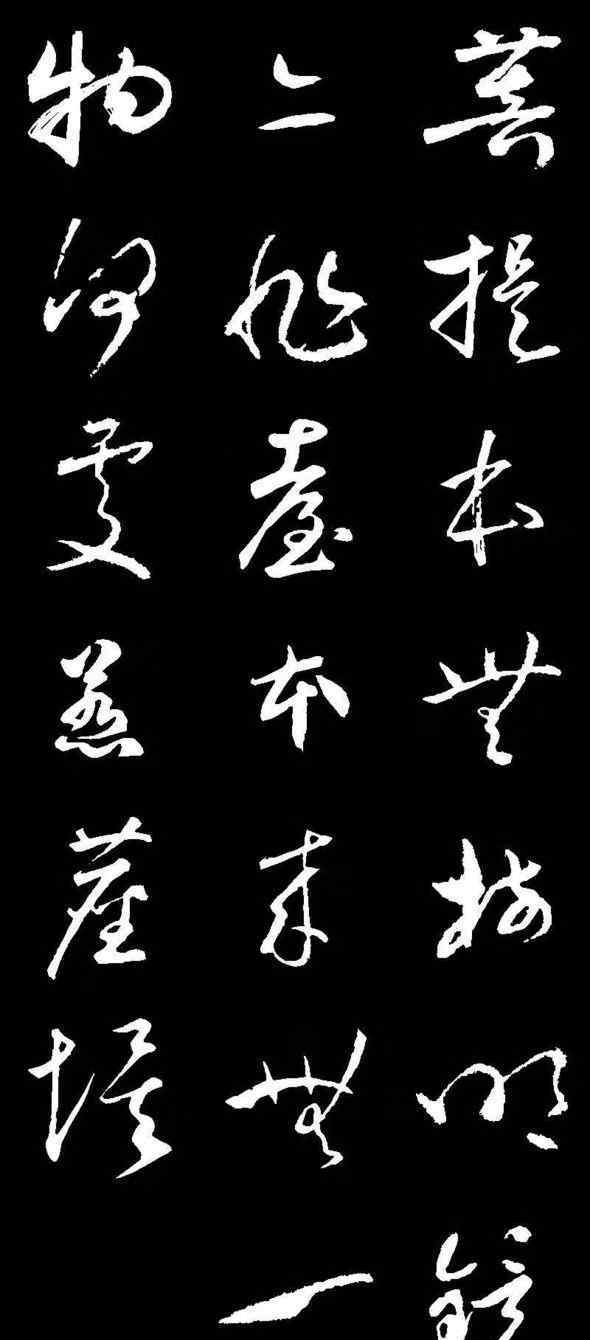 菩提本無樹明鏡
亦非臺本來無一
物何處惹塵埃